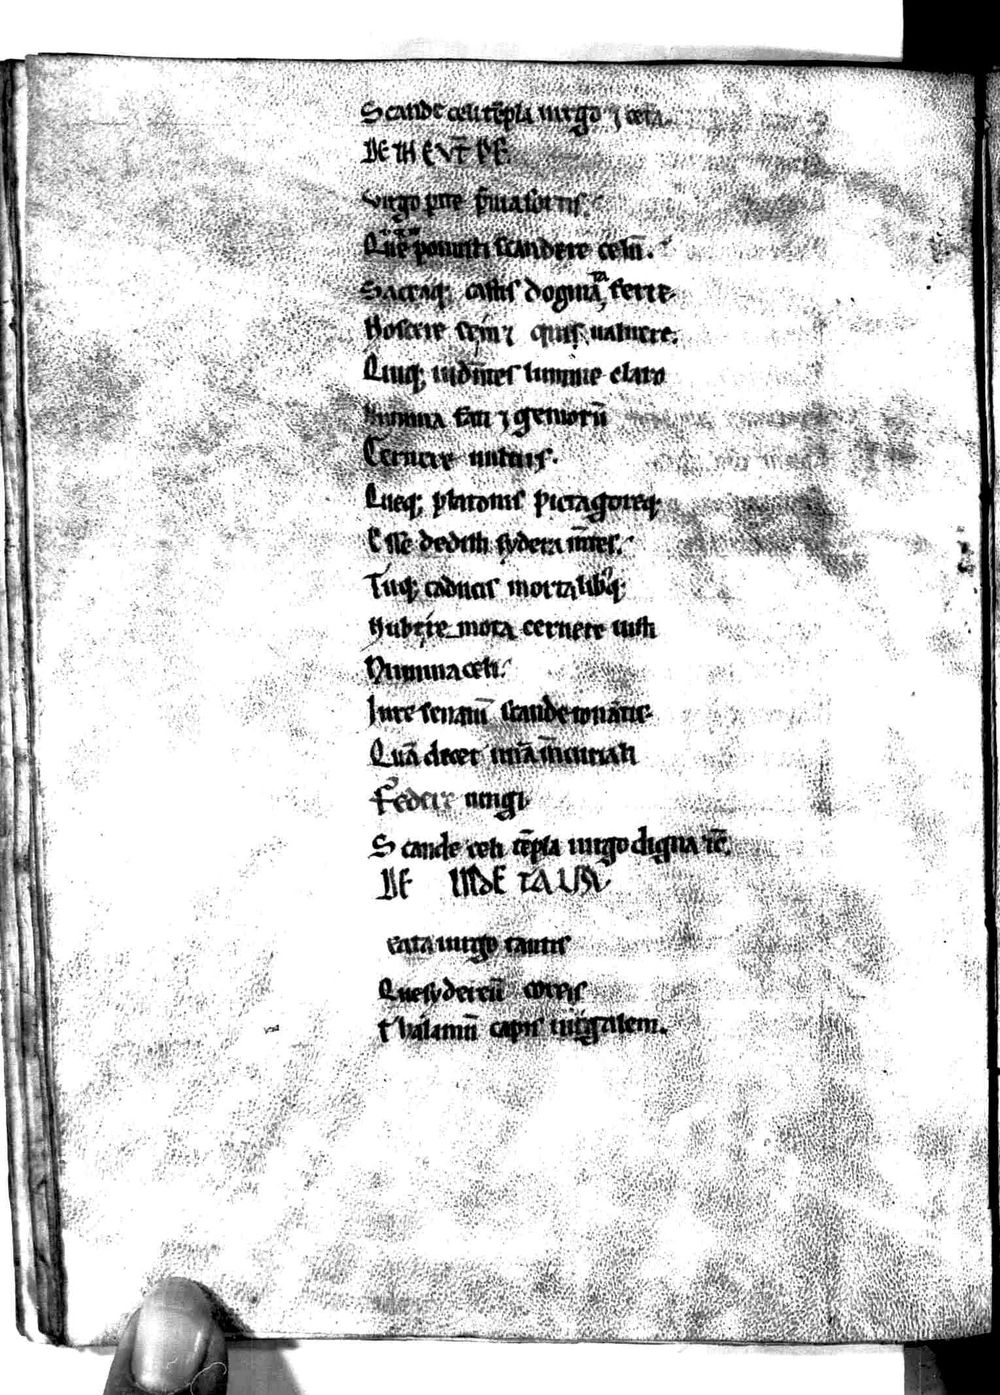 Scande celi tēpla uirgo ⁊ cetā.
DE THEUT̄PE
Virgo pite p̄uia sortis.
Quē ponuisti scandere celū.
Sacraq; castis dogmata ferre
Noscere quis ualuere.
Quiq; uidētes lumine claro
Numina fati ⁊ geniorū
Cernere uultus.
Queq; platonis pictagoreq;
Esse dedisti sydera mētes.
Tuq; caducis mortalibꝰq;
Nube remota cernere iusti
Numina celi.
Iure senatū scande tonātis
Quā decet unā mcuriali
Federe iungi
Scande celi tēpla uirgo digna tc̄.
DE
Beata uirgo tantis
Que sydereū
Thalamū capis iugalem.